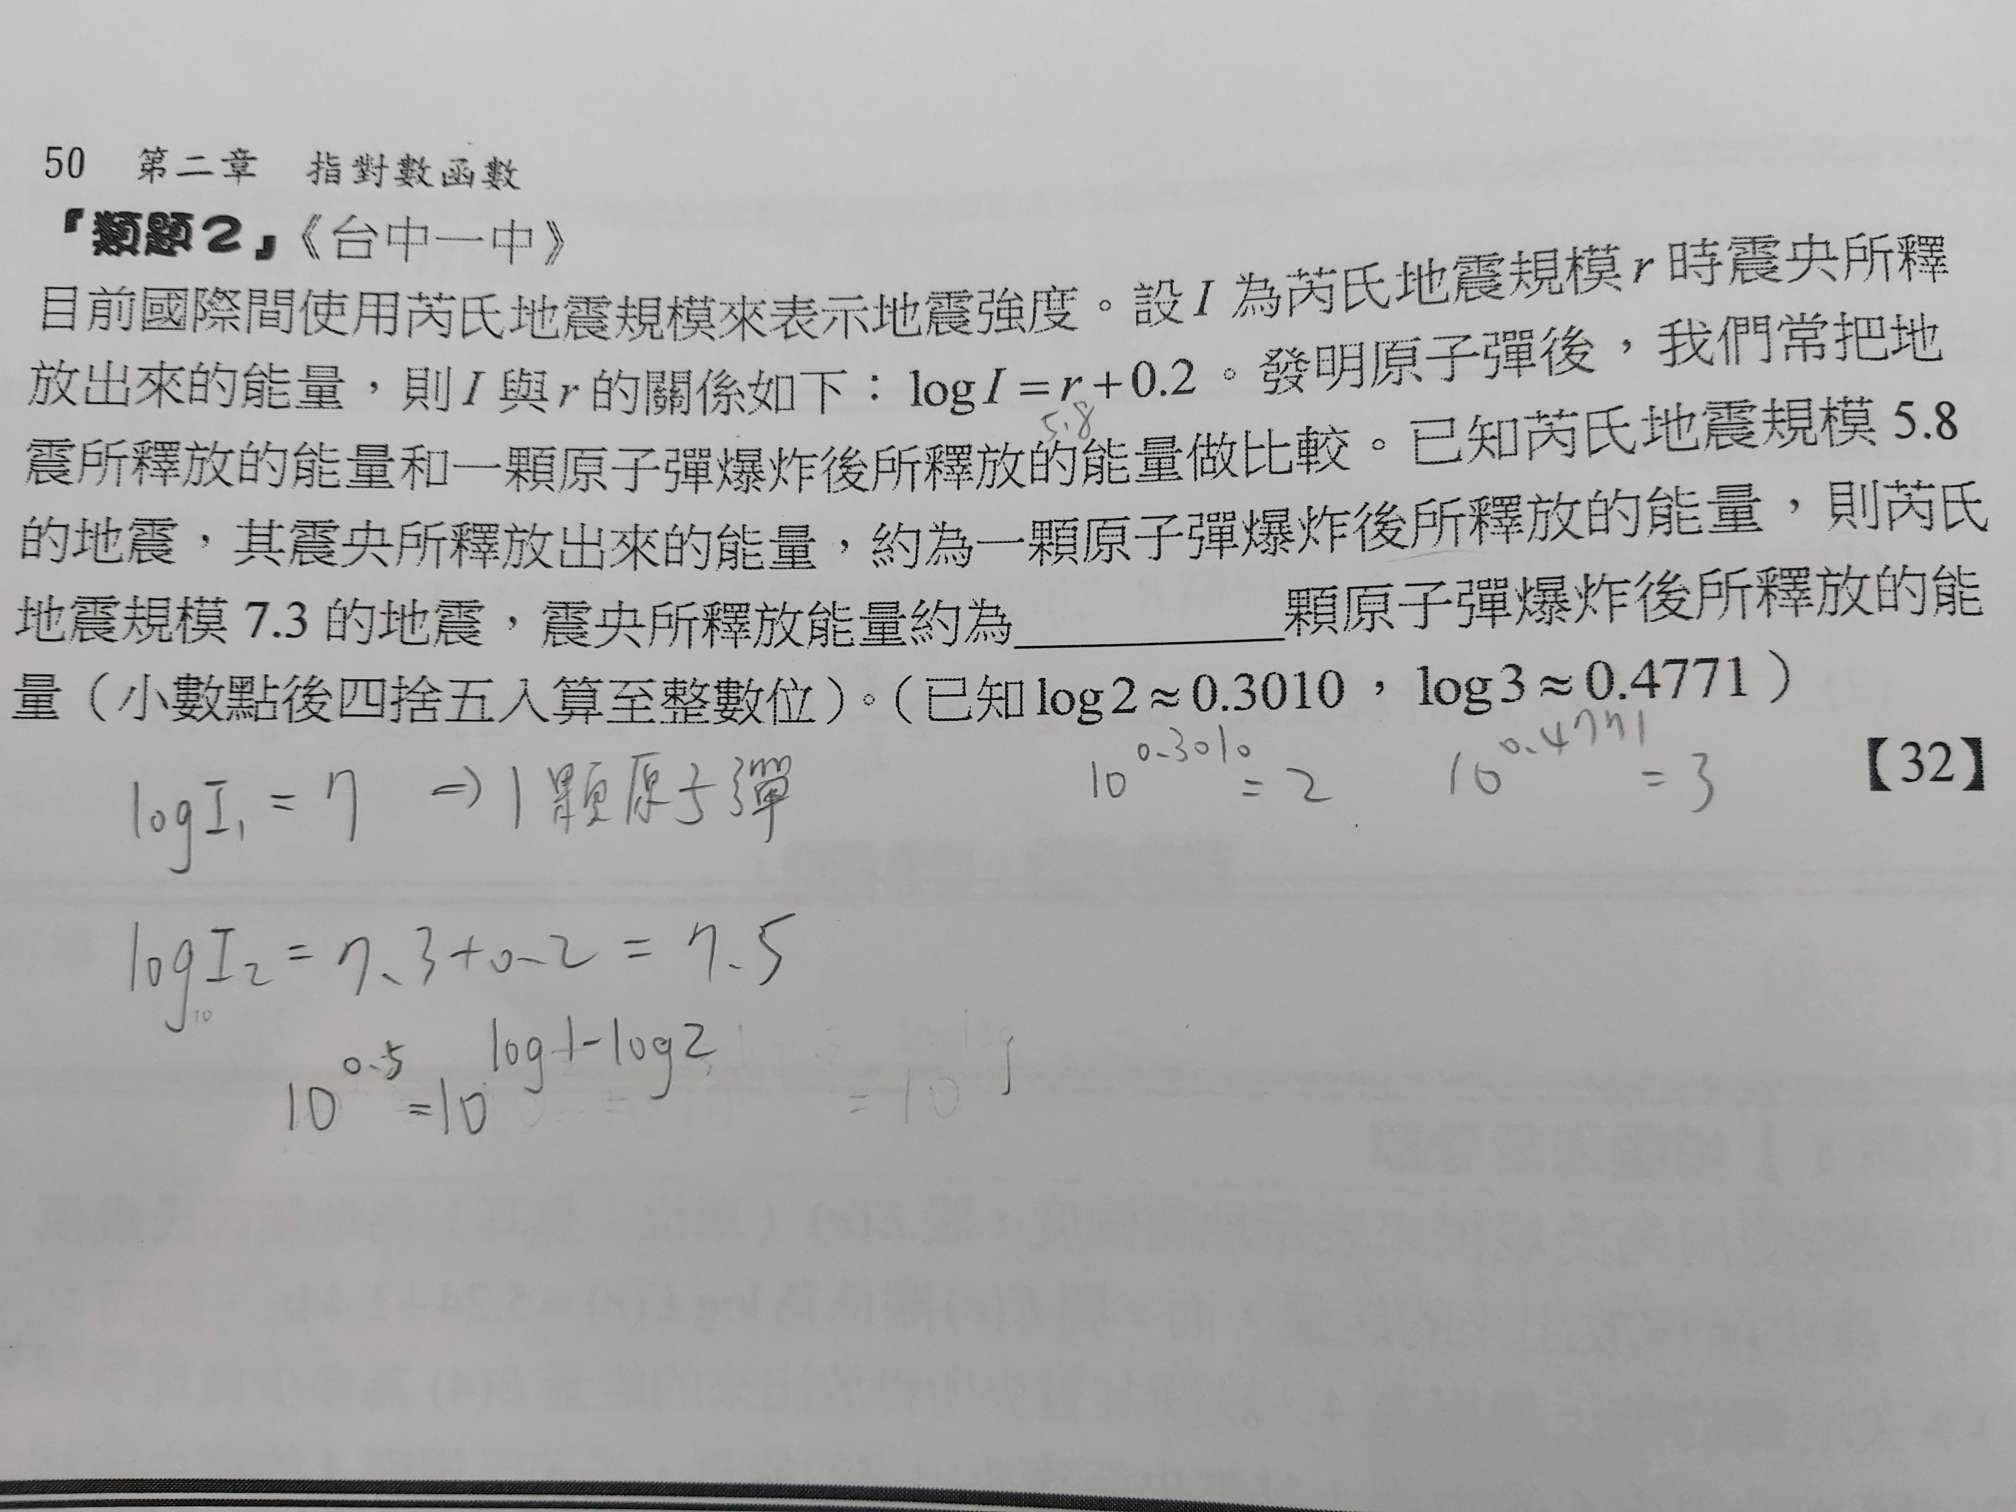 50 第二章 指對數函數
『類題2』《台中一中》
目前國際間使用芮氏地震規模來表示地震強度。設 I 為芮氏地震規模 r 時震央所釋
放出來的能量，則 I 與 r 的關係如下：log I = r + 0.2。發明原子彈後，我們常把地
5.8
震所釋放的能量和一顆原子彈爆炸後所釋放的能量做比較。已知芮氏地震規模 5.8
的地震，其震央所釋放出來的能量，約為一顆原子彈爆炸後所釋放的能量，則芮氏
地震規模 7.3 的地震，震央所釋放能量約為__________顆原子彈爆炸後所釋放的能
量（小數點後四捨五入算至整數位）。（已知 log 2 ≈ 0.3010，log 3 ≈ 0.4771）
【32】
10^0.3010 = 2 10^0.4771 = 3
log I₁ = 7 ⇒ 1顆原子彈
log₁₀ I₂ = 7.3+0.2 = 7.5
10^0.5 = 10^(log1-log2)